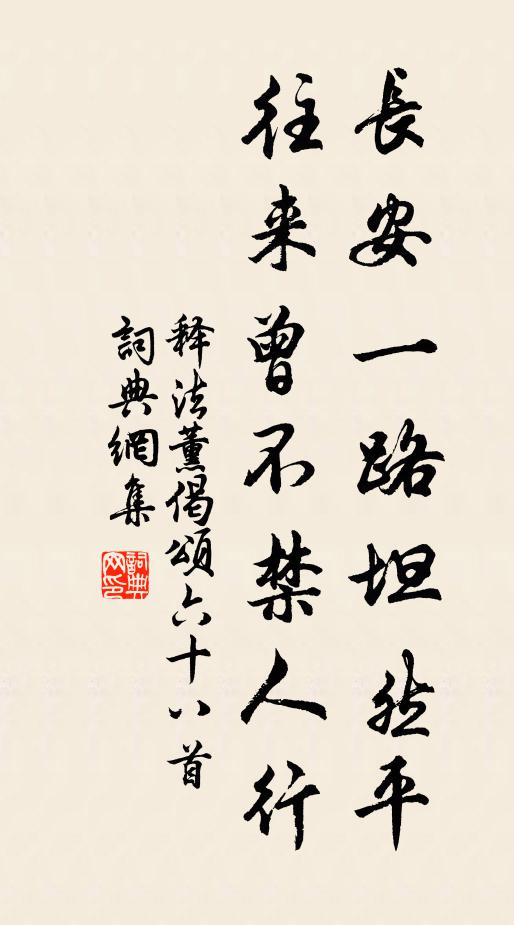 長安一路坦然平
往来曾不禁人行
释法薰偈頌六十八首
詞典網集
詞典网印